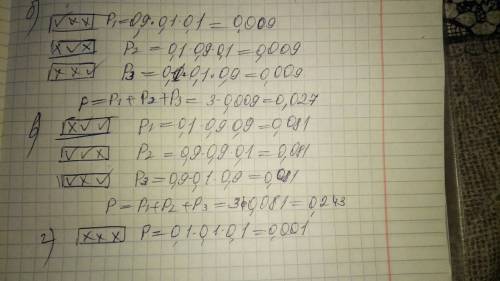 б) √ x x P₁=0,9·0,1·0,1=0,009
x √ x P₂=0,1·0,9·0,1=0,009
x x √ P₃=0,1·0,1·0,9=0,009
P=P₁+P₂+P₃=3·0,009=0,027
в) x √ √ P₁=0,1·0,9·0,9=0,081
√ √ x P₂=0,9·0,9·0,1=0,081
√ x √ P₃=0,9·0,1·0,9=0,081
P=P₁+P₂+P₃=3·0,081=0,243
г) x x x P=0,1·0,1·0,1=0,001